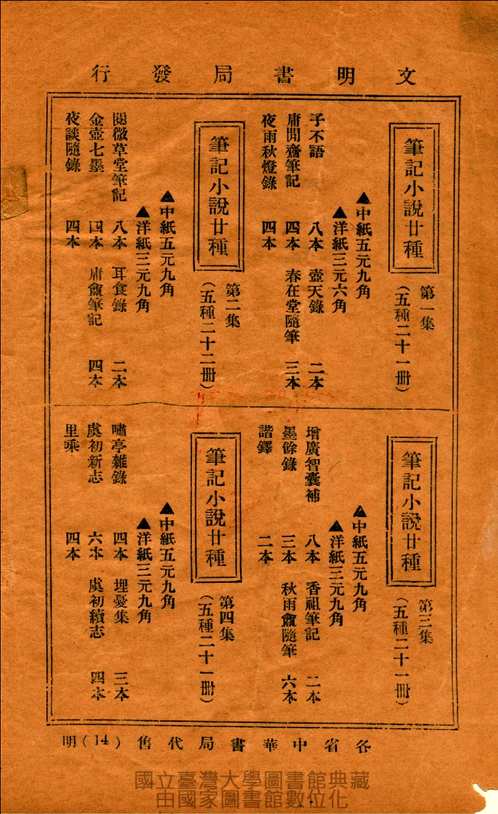 文明書局發行
筆記小說廿種
第一集
（五種二十一冊）
▲中紙五元九角
▲洋紙三元六角
子不語　八本　壺天錄　二本
庸閒齋筆記　四本　春在堂隨筆　三本
夜雨秋燈錄　四本
筆記小說廿種
第二集
（五種二十二冊）
▲中紙五元九角
▲洋紙三元九角
閱微草堂筆記　八本　耳食錄　二本
金壺七墨　四本　庸盦筆記　四本
夜談隨錄　四本
筆記小說廿種
第三集
（五種二十一冊）
▲中紙五元九角
▲洋紙三元九角
增廣智囊補　八本　香祖筆記　二本
墨餘錄　三本　秋雨盦隨筆　六本
諧鐸　二本
筆記小說廿種
第四集
（五種二十一冊）
▲中紙五元九角
▲洋紙三元九角
嘯亭雜錄　四本　埋憂集　三本
虞初新志　六本　虞初續志　四本
里乘　四本
各省中華書局代售（14）明
國立臺灣大學圖書館典藏
由國家圖書館數位化